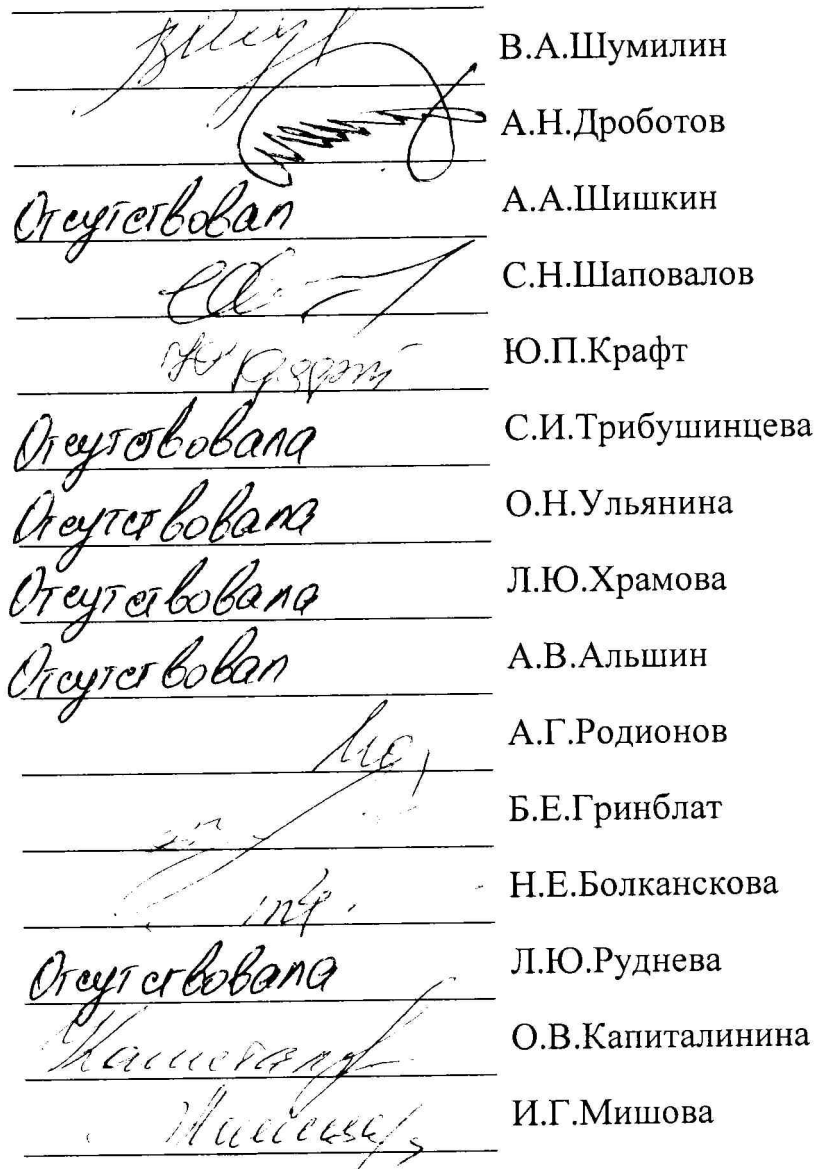 В.А.Шумилин
А.Н.Дроботов
Отсутствовал А.А.Шишкин
С.Н.Шаповалов
Ю.П.Крафт
Отсутствовала С.И.Трибушинцева
Отсутствовала О.Н.Ульянина
Отсутствовала Л.Ю.Храмова
Отсутствовал А.В.Альшин
А.Г.Родионов
Б.Е.Гринблат
Н.Е.Болканскова
Отсутствовала Л.Ю.Руднева
О.В.Капиталинина
И.Г.Мишова